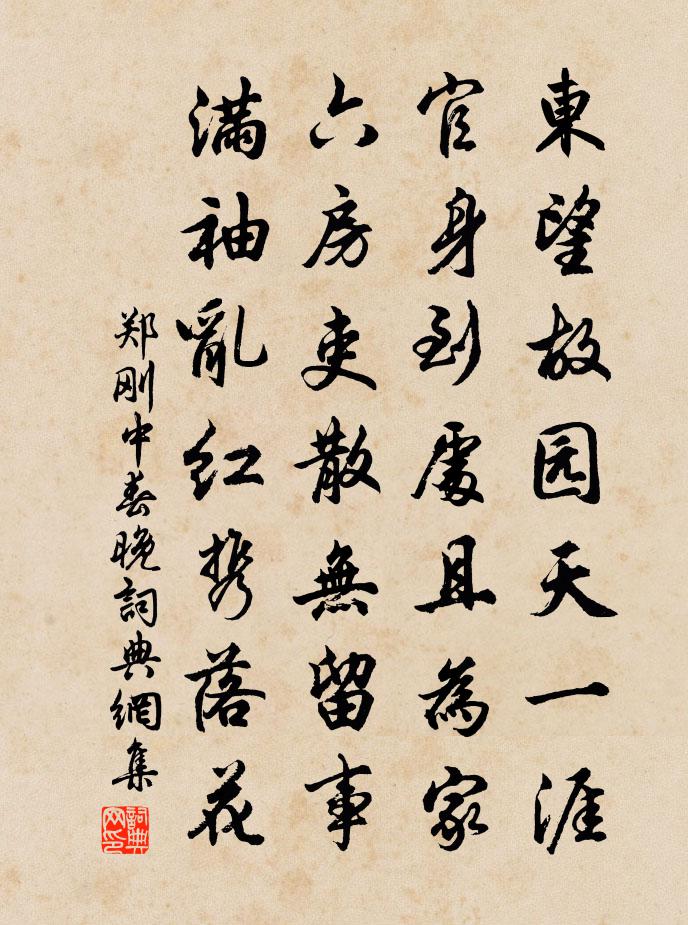 東望故园天一涯
官身到處且為家
六房吏散無留事
滿袖亂紅携落花
郑刚中春晚詞典網集
詞典网印